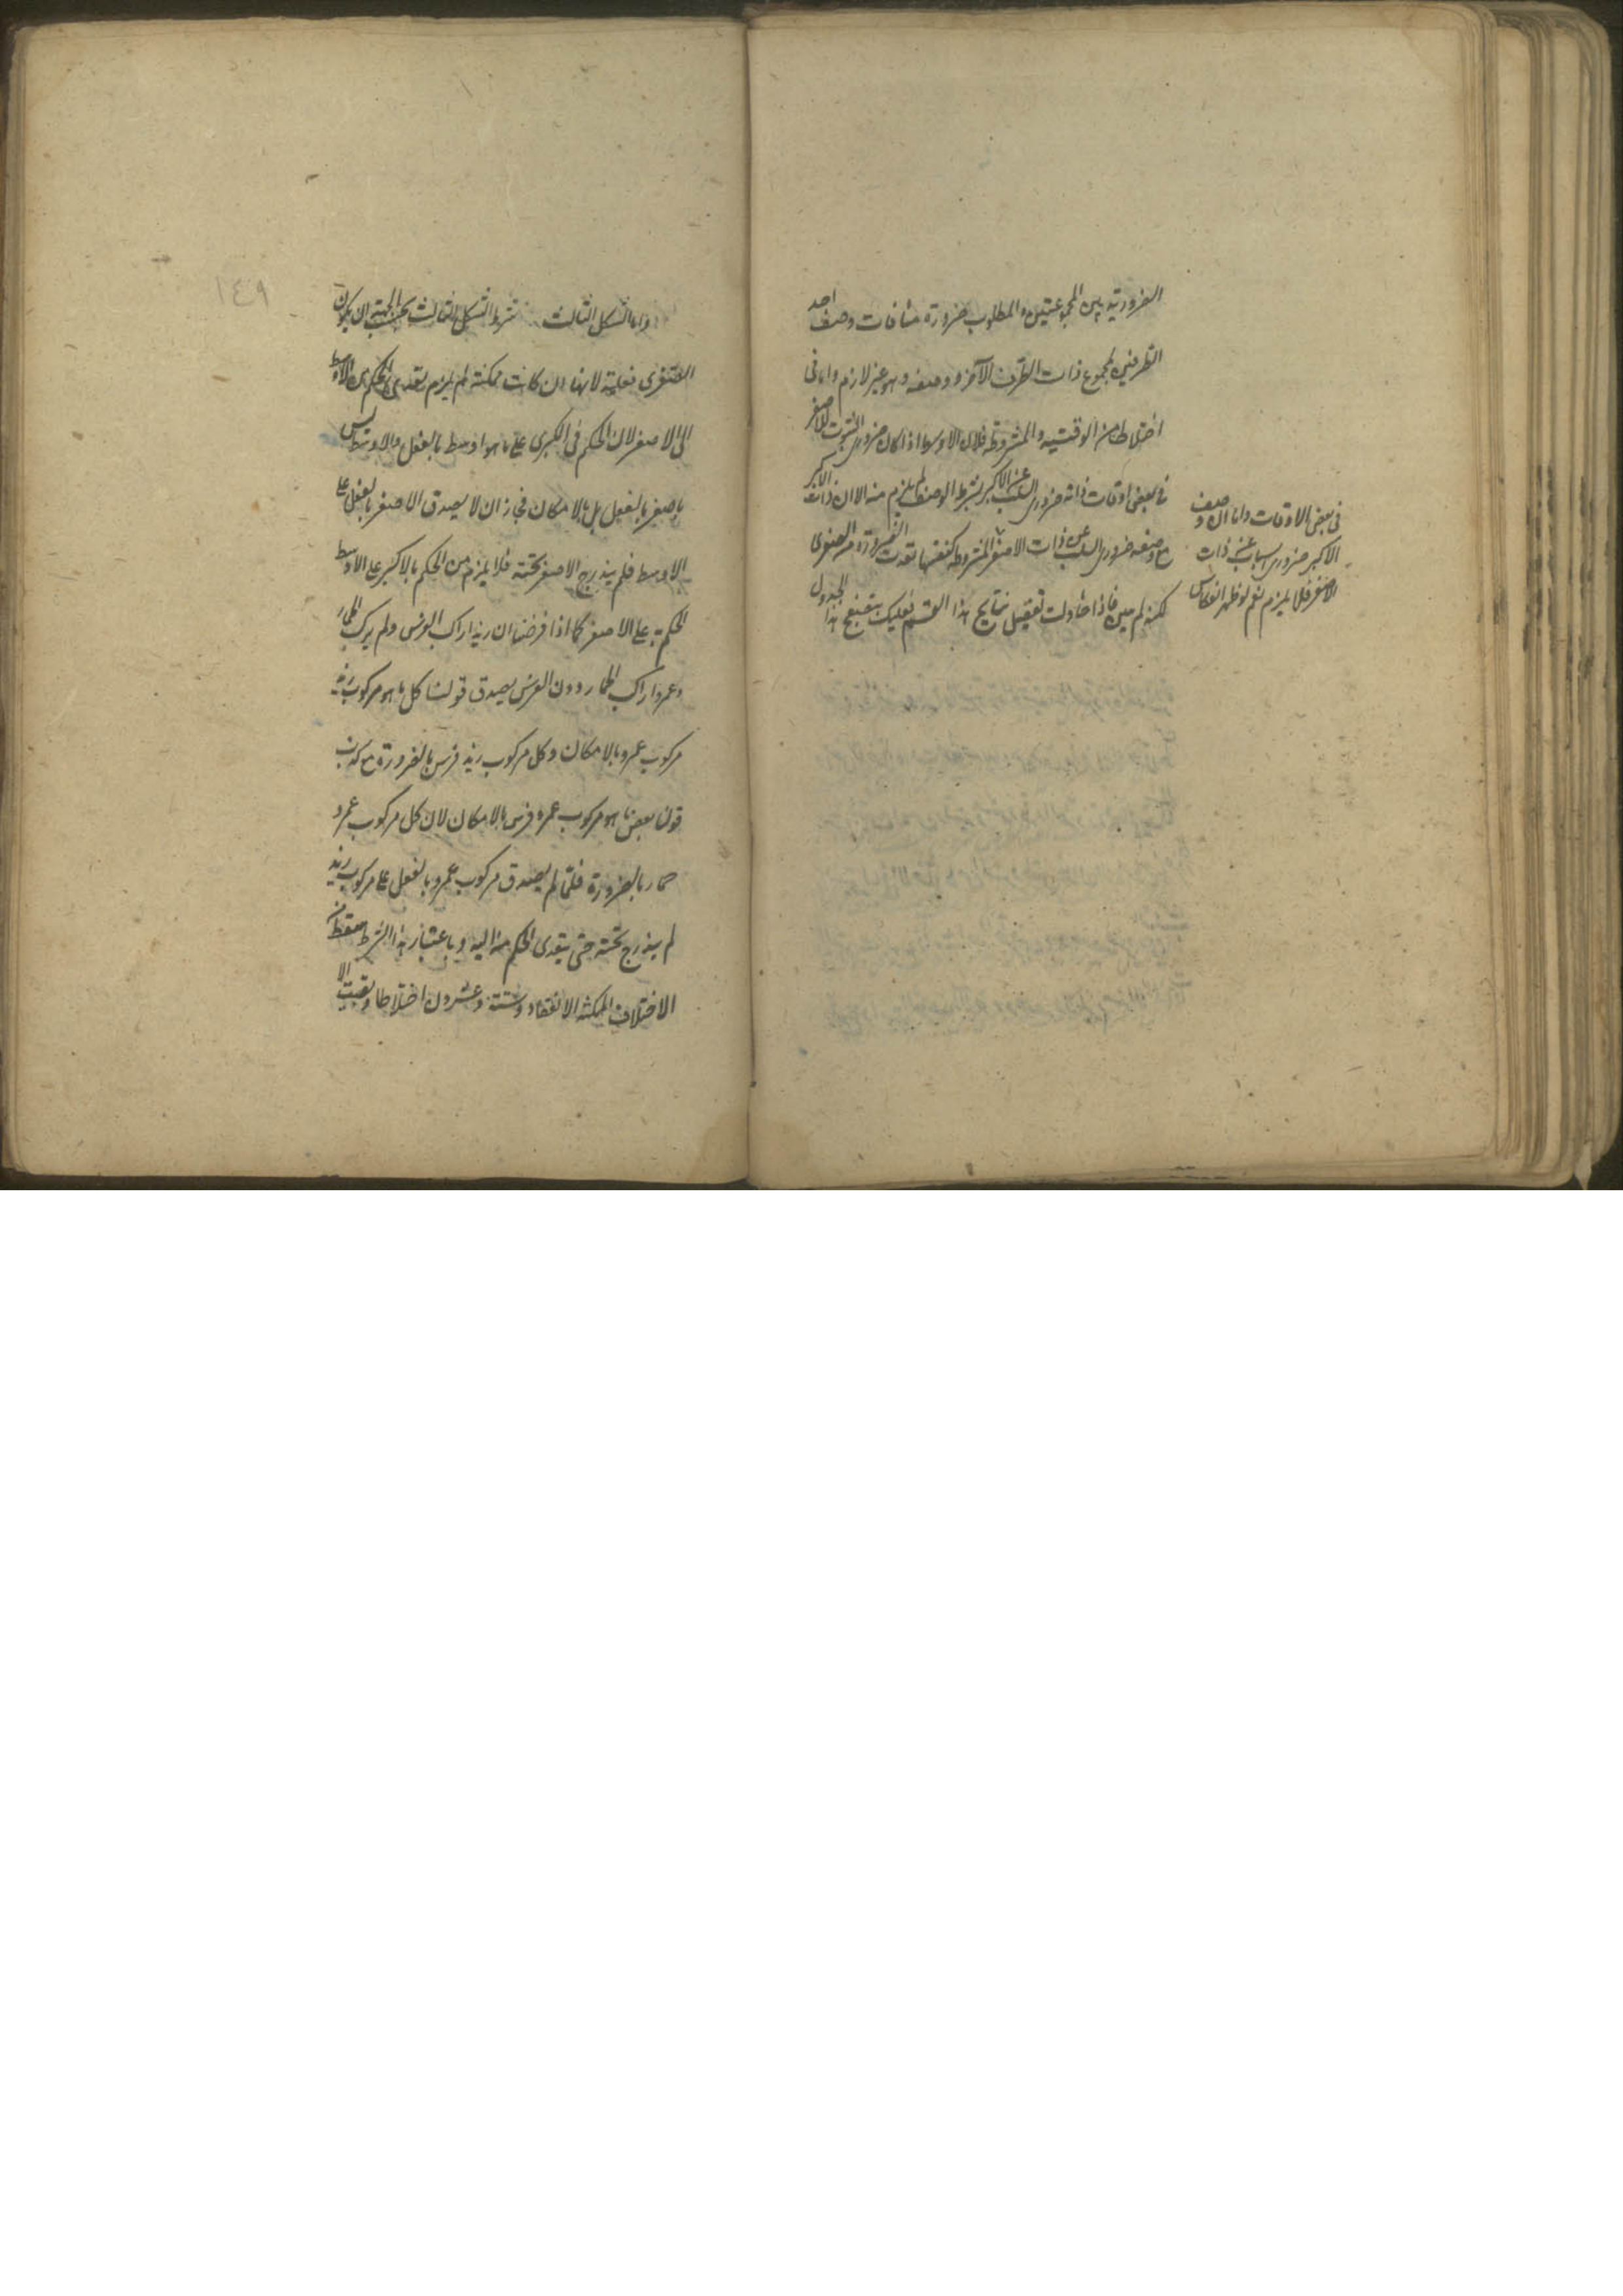 الضرورية بين المجموعتين والمطلوب ضرورة منافات وصف احد
الطرفين لمجموع ذات الطرف الآخر ووصفه وهو غير لازم واما في
اختلاطها من الوقتية والمشروطة فلان الاوسط اذا كان ضرورى الثبوت للاصغر
في بعض اوقات ذاته ضرورى السلب عن الاكبر بشرط الوصف لم يلزم منه الا ان ذات الاكبر
مع وصفه ضرورى السلب عن ذات الاصغر
لكنه لم يبين فاذا حاولت تفصيل نتايج هذا القسم فعليك بتصفح هذا الجدول
في بعض الاوقات واما ان وصف
الاكبر ضرورى السلب عن ذات
الاصغر فلا يلزم نعم لو ظهر انعكاس
المشروطة كنفسها تعدت الضرورة من الصغرى
١٤٩
واما الشكل الثالث شرط الشكل الثالث بحسب الجهة ان يكون
الصغرى فعلية لانها ان كانت ممكنة لم يلزم تعدى الحكم من الاوسط
الى الاصغر لان الحكم في الكبرى على ما هو اوسط بالفعل والاوسط ليس
باصغر بالفعل بل بالامكان فجاز ان لا يصدق الاصغر بالفعل على
الاوسط فلم يندرج الاصغر تحته فلا يلزم من الحكم بالاكبر على الاوسط
الحكم به على الاصغر كما اذا فرضنا ان زيدا راكب الفرس ولم يركب الحمار
وعمروا راكب الحمار دون الفرس يصدق قولنا كل ما هو مركوب زيد
مركوب عمرو بالامكان وكل مركوب زيد فرس بالضرورة مع كذب
قولنا بعض ما هو مركوب عمرو فرس بالامكان لان كل مركوب عمرو
حمار بالضرورة فلما لم يصدق مركوب عمرو بالفعل على مركوب زيد
لم يندرج تحته حتى يتعدى الحكم منه اليه وباعتبار هذا الشرط سقط من
الاختلاطات الممكنة الانعقاد ستة وعشرون اختلاطا وبقيت الا